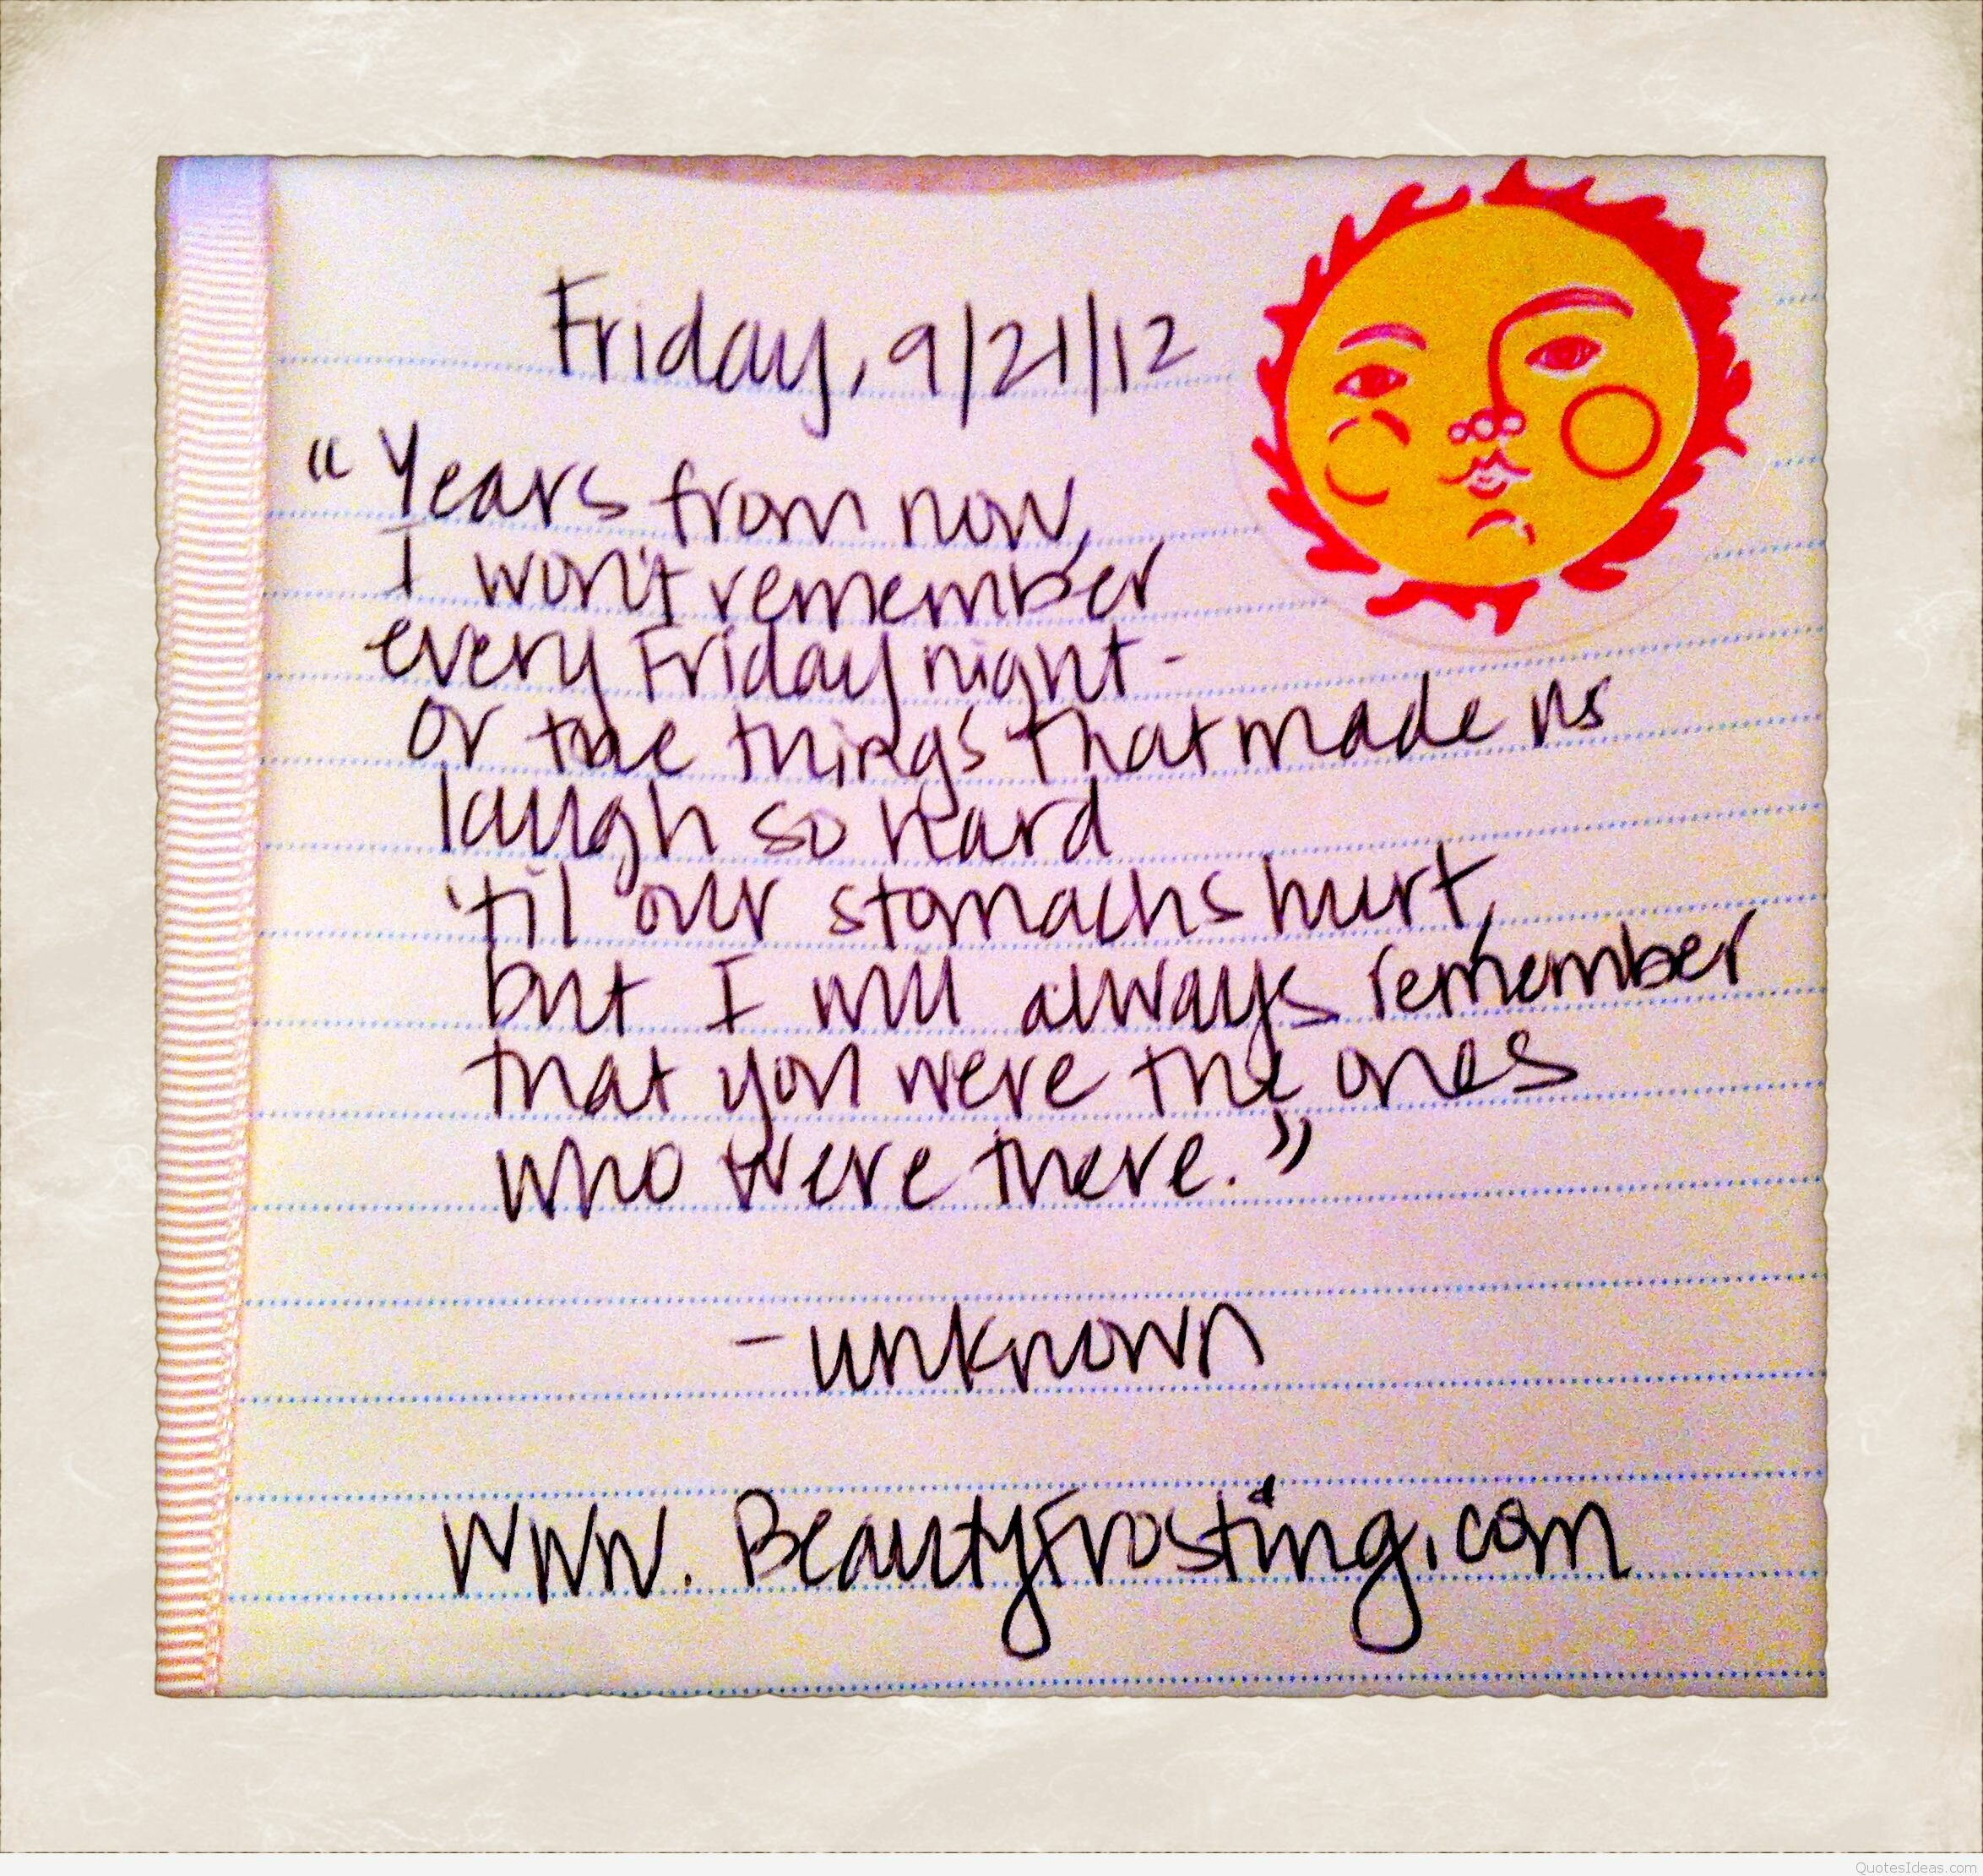 Friday, 9/21/12
"Years from now,
I won't remember
every Friday night -
or the things that made us
laugh so hard
'til our stomachs hurt,
but I will always remember
that you were the ones
who were there."
- unknown
www.BeautyFrosting.com
QuotesIdeas.com